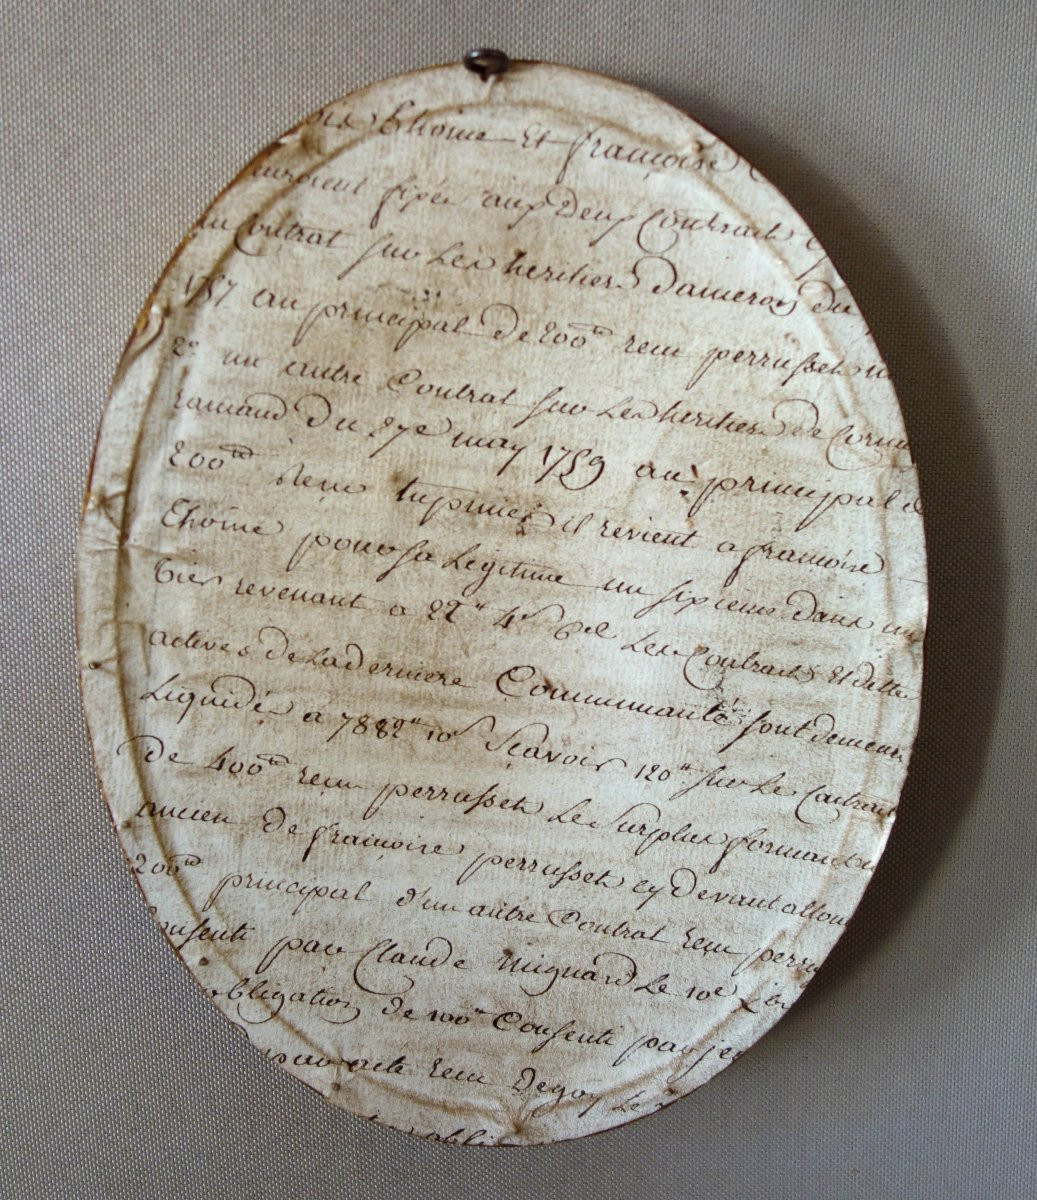 Choine Et françoise
auroient fixée aux Deux Contract
au Contrat sur Les heritiers Dameron du
1757 au principal de 200ᵗᵗ reçu perrusset
2° un autre Contrat sur Les heritiers de
ramand Du 27e may 1759 au principal d
200ᵗᵗ Reçu il revient a francoise
Choine pour sa Légitime un sixieme dans
revenant a 22ᵗᵗ 4ˢ Les Contrats Et dette
actives de La derniere Communauté sont demeur
Liquidés a 7882ᵗᵗ 10ˢ Scavoir 120ᵗᵗ sur Le Contrat
de 400ᵗᵗ reçu perrusset Le Surplus formant
ancien de francoise perrusset cy devant allou
200ᵗᵗ principal d'un autre Contrat reçu perru
onsenti par Claude mignard Le 10e
bligation de 100ᵗᵗ Consenti par je
par acte reçu Degoy Le